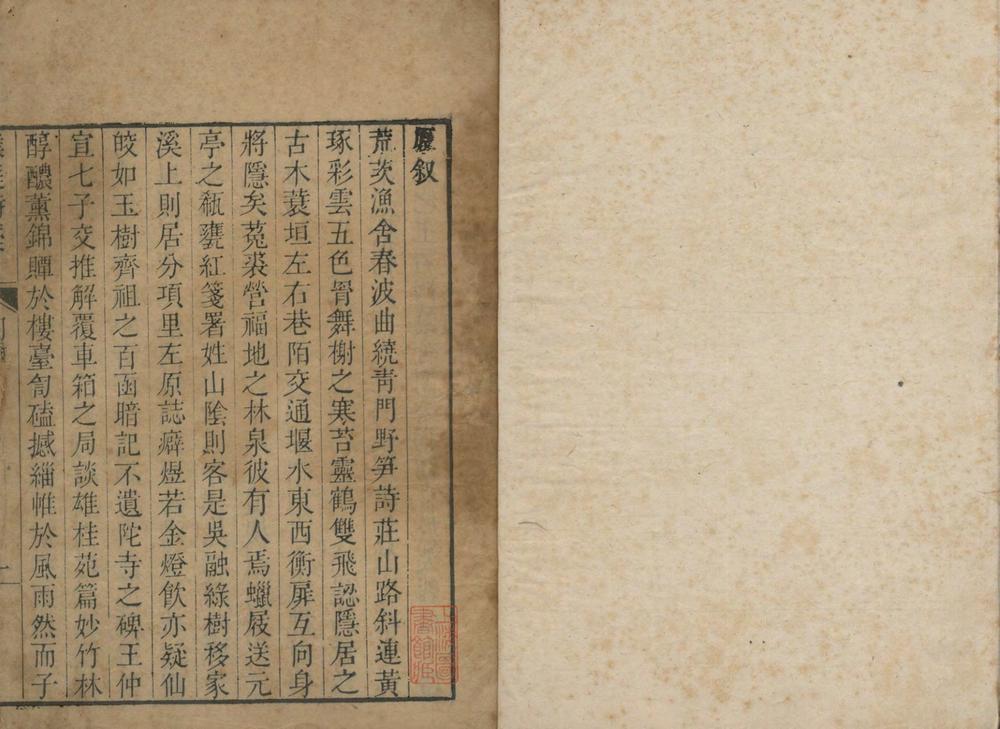 原叙
荒茨漁舍春波曲繞青門野笋詩莊山路斜連黃
琢彩雲五色骨舞榭之寒苔靈鶴雙飛認隱居之
古木蓑垣左右巷陌交通堰水東西衡扉互向身
將隱矣菟裘營福地之林泉彼有人焉蠟屐送元
亭之瓻甕紅箋署姓山陰則客是吳融綠樹移家
溪上則居分項里左原誌癖煜若金燈飲亦疑仙
皎如玉樹齊祖之百函暗記不遺陀寺之碑王仲
宣七子交推解覆車箱之局談雄桂苑篇妙竹林
醇醲薰錦贉於樓臺訇磕撼緇帷於風雨然而子
書館